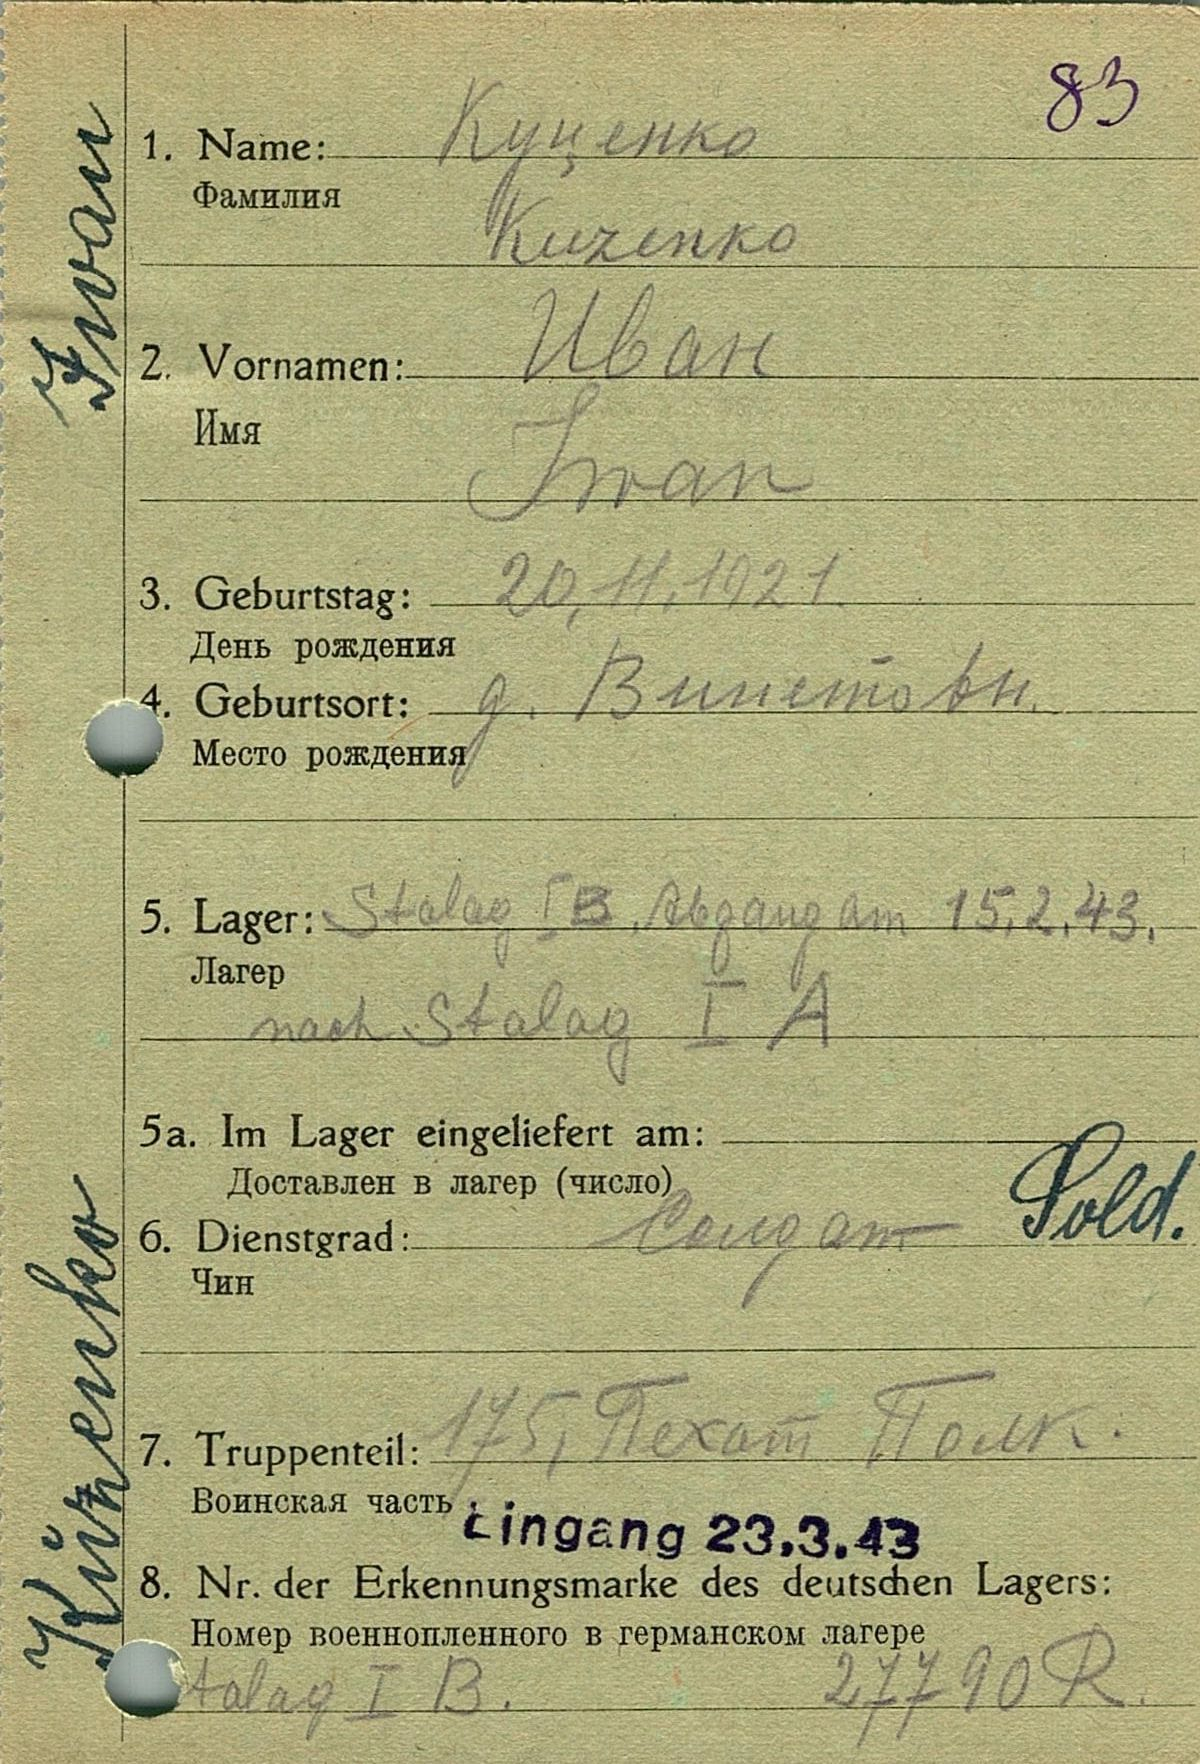 83
1. Name: Куценко
Фамилия
Kuzenko
2. Vornamen: Иван
Имя
Iwan
3. Geburtstag: 20.11.1921.
День рождения
4. Geburtsort: д.
Место рождения
5. Lager: Stalag I B. Abgang am 15.2.43.
Лагер
nach Stalag I A
5a. Im Lager eingeliefert am:
Доставлен в лагер (число)
6. Dienstgrad: Солдат Sold.
Чин
7. Truppenteil: 175, Пехот Полк.
Воинская часть
Eingang 23.3.43
8. Nr. der Erkennungsmarke des deutschen Lagers:
Номер военнопленного в германском лагере
talag I B. 27790 R.
Kuzenko Iwan